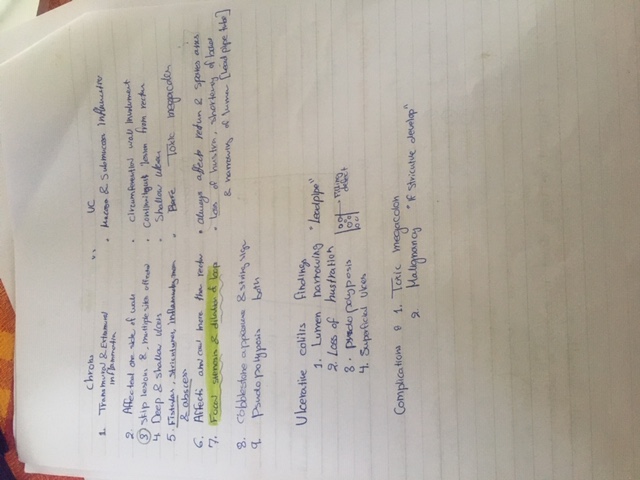 Chrons vs UC
1. Transmural & Extramural inflammation • Mucosa & Submucosa Inflammation
2. Affected one side of wall • circumferential wall involvement
③ Skip lesion & multiple site affected • Contiguous lesion from rectum
4. Deep & shallow ulcers • Shallow ulcers
5. Fistulas, strictures, inflammatory mass & abscess • Rare Toxic megacolon
6. Affects more than rectum • always affects rectum & spares anus
7. Focal stenosis & dilation of loop • Loss of haustra, shortening of bowel & narrowing of lumen [Lead pipe tube]
8. Cobblestone apperance & string sign
9. Pseudo polyposis both
Ulcerative colitis findings
1. Lumen narrowing "Leadpipe"
2. Loss of hustration
3. Pseudo polyposis → Filling defect
4. Superficial Ulcers
Complications 1. Toxic megacolon
2. Malignancy "if stricture develop"